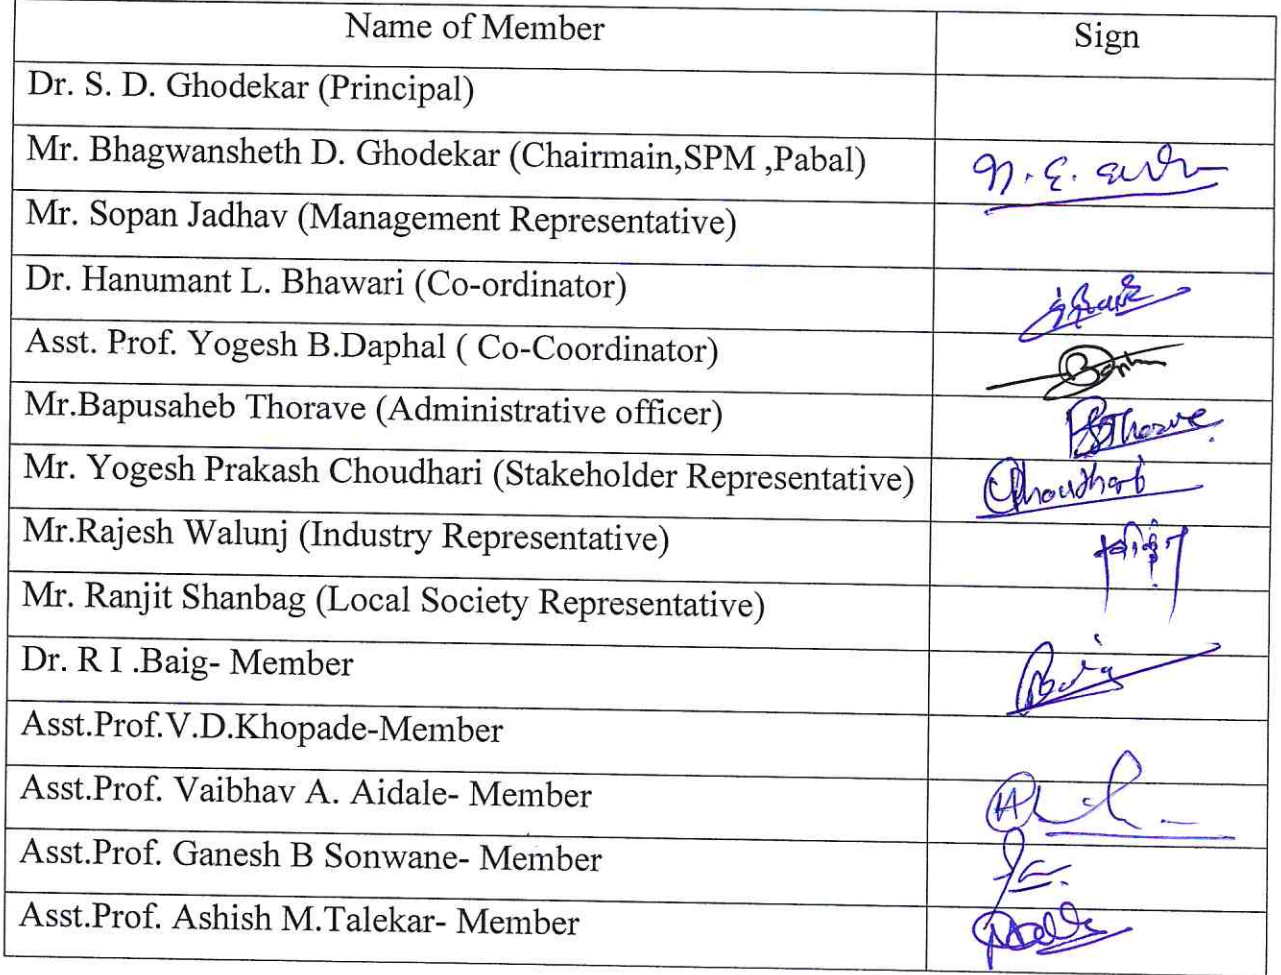 Name of Member Sign
Dr. S. D. Ghodekar (Principal)
Mr. Bhagwansheth D. Ghodekar (Chairmain,SPM ,Pabal)
Mr. Sopan Jadhav (Management Representative)
Dr. Hanumant L. Bhawari (Co-ordinator)
Asst. Prof. Yogesh B.Daphal ( Co-Coordinator)
Mr.Bapusaheb Thorave (Administrative officer) Thorave
Mr. Yogesh Prakash Choudhari (Stakeholder Representative) Choudhari
Mr.Rajesh Walunj (Industry Representative)
Mr. Ranjit Shanbag (Local Society Representative)
Dr. R I .Baig- Member Baig
Asst.Prof.V.D.Khopade-Member
Asst.Prof. Vaibhav A. Aidale- Member
Asst.Prof. Ganesh B Sonwane- Member
Asst.Prof. Ashish M.Talekar- Member